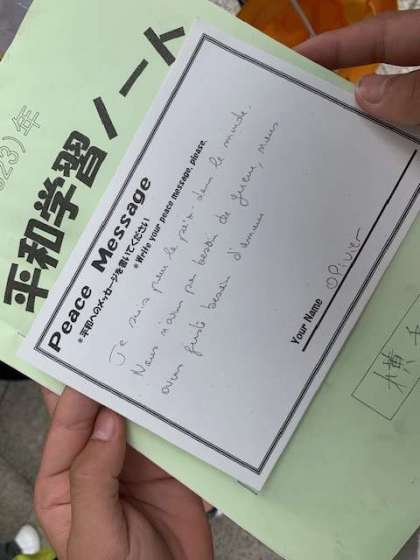 023)年
平和学習ノート
Peace Message
*平和へのメッセージを書いてください
*Write your peace message, please.
Je suis pour la paix dans le monde.
Nous n'avons pas besoin de guerre, nous
avons juste besoin d'amour
Your Name Olivier
横